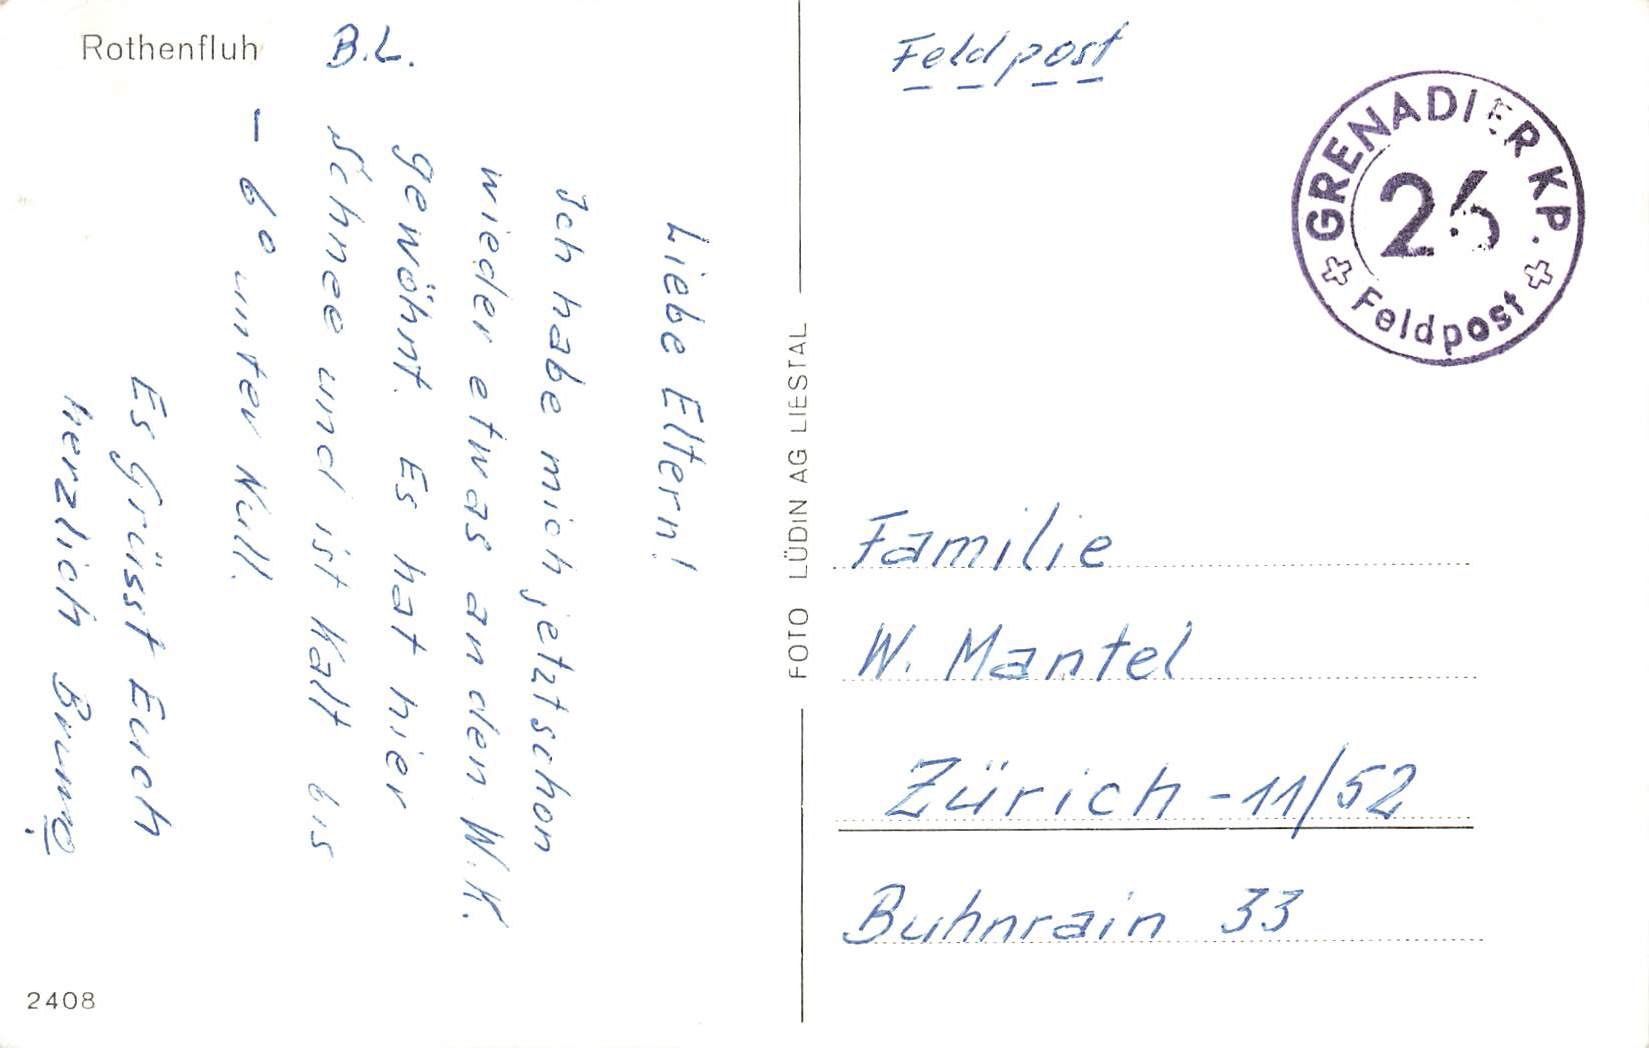 Rothenfluh B.L.
Liebe Eltern!
Ich habe mich jetzt schon
wieder etwas an den W.K.
gewöhnt. Es hat hier
Schnee und ist kalt bis
- 6° unter Null.
Es grüsst Euch
herzlich Bruno
2408
FOTO LÜDIN AG LIESTAL
Feldpost
GRENADIER KP.
26
Feldpost
Familie
W. Mantel
Zürich - 11/52
Buhnrain 33